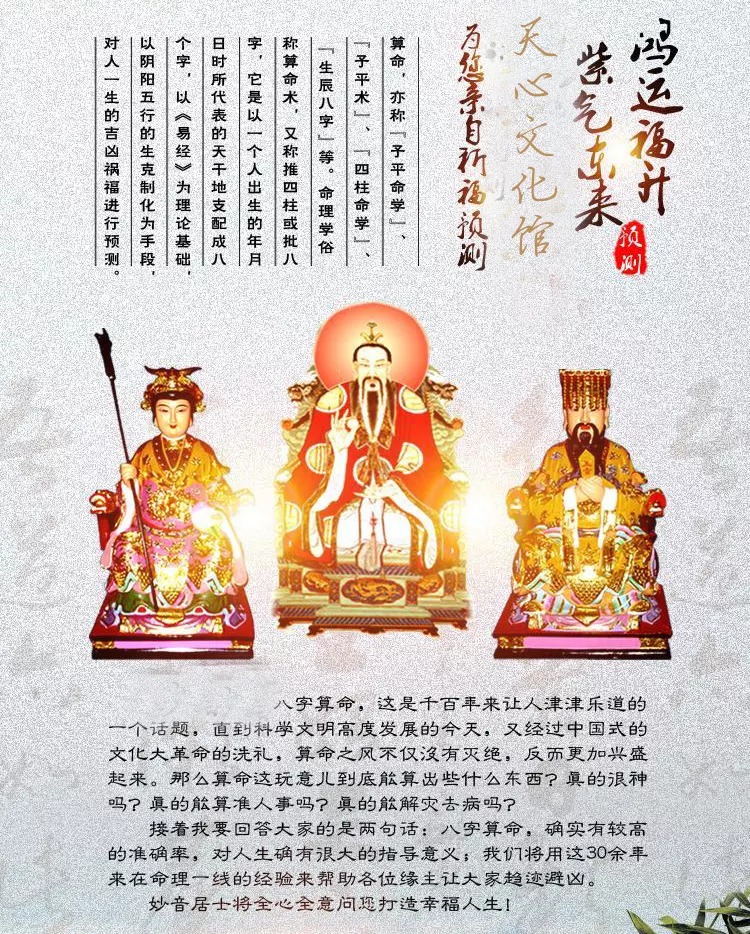 鸿运福升
紫气东来
预测
天心文化馆
为您亲自祈福预测
算命，亦称『子平命学』、
『子平术』、『四柱命学』、
『生辰八字』等。命理学俗
称算命术，又称推四柱或批八
字，它是以一个人出生的年月
日时所代表的天干地支配成八
个字，以《易经》为理论基础，
以阴阳五行的生克制化为手段，
对人一生的吉凶祸福进行预测。
八字算命，这是千百年来让人津津乐道的
一个话题，直到科学文明高度发展的今天，又经过中国式的
文化大革命的洗礼，算命之风不仅没有灭绝，反而更加兴盛
起来。那么算命这玩意儿到底能算出些什么东西？真的很神
吗？真的能算准人事吗？真的能解灾去病吗？
接着我要回答大家的是两句话：八字算命，确实有较高
的准确率，对人生确有很大的指导意义；我们将用这30余年
来在命理一线的经验来帮助各位缘主让大家趋迹避凶。
妙音居士将全心全意问您打造幸福人生！